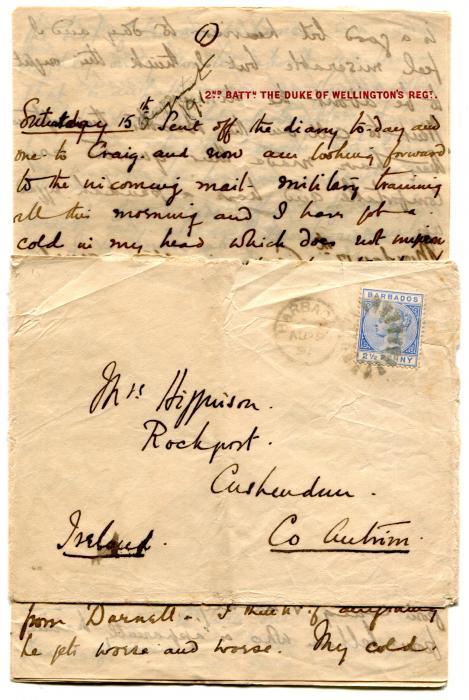 1
2ND BATTN THE DUKE OF WELLINGTON'S REGT.
Saturday 15th Sent off the diary to-day and
one to Craig and now am looking forward
to the incoming mail - military training
all this morning and I have got a
cold in my head which does not
BARBADOS
2½ PENNY
BARBA
AU
Mrs Higginson.
Rockport.
Cushendun.
Co Antrim.
Ireland.
from Darnell - I think if anything
he gets worse and worse. My cold